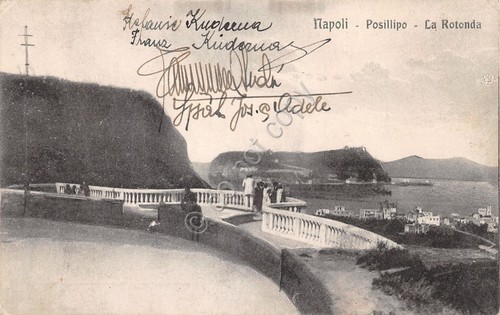 Napoli - Posillipo - La Rotonda
Stefanie Kuderna
Franz Kuderna
Jos. & Adele